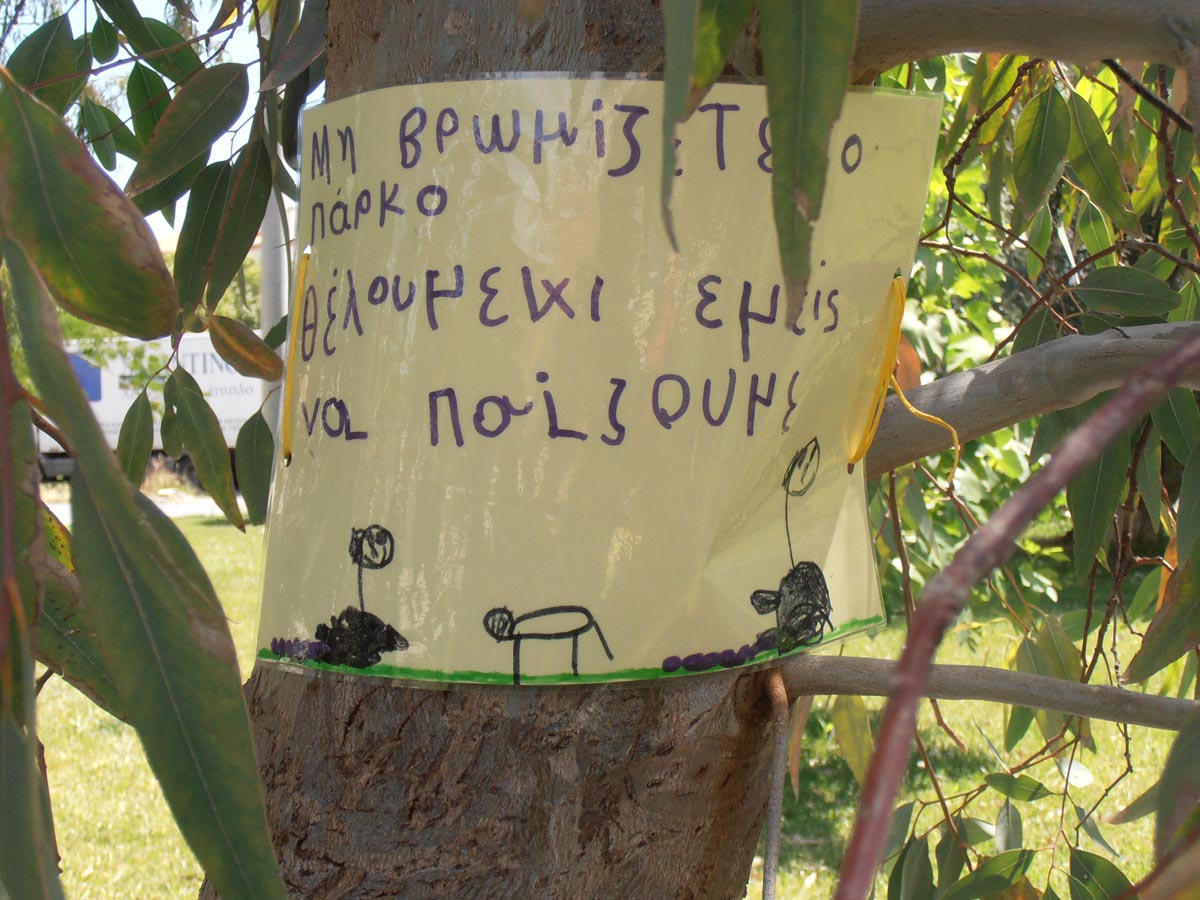 Μη βρωμίζετε το
πάρκο
θέλουμεικι εμείς
να παίζουμε